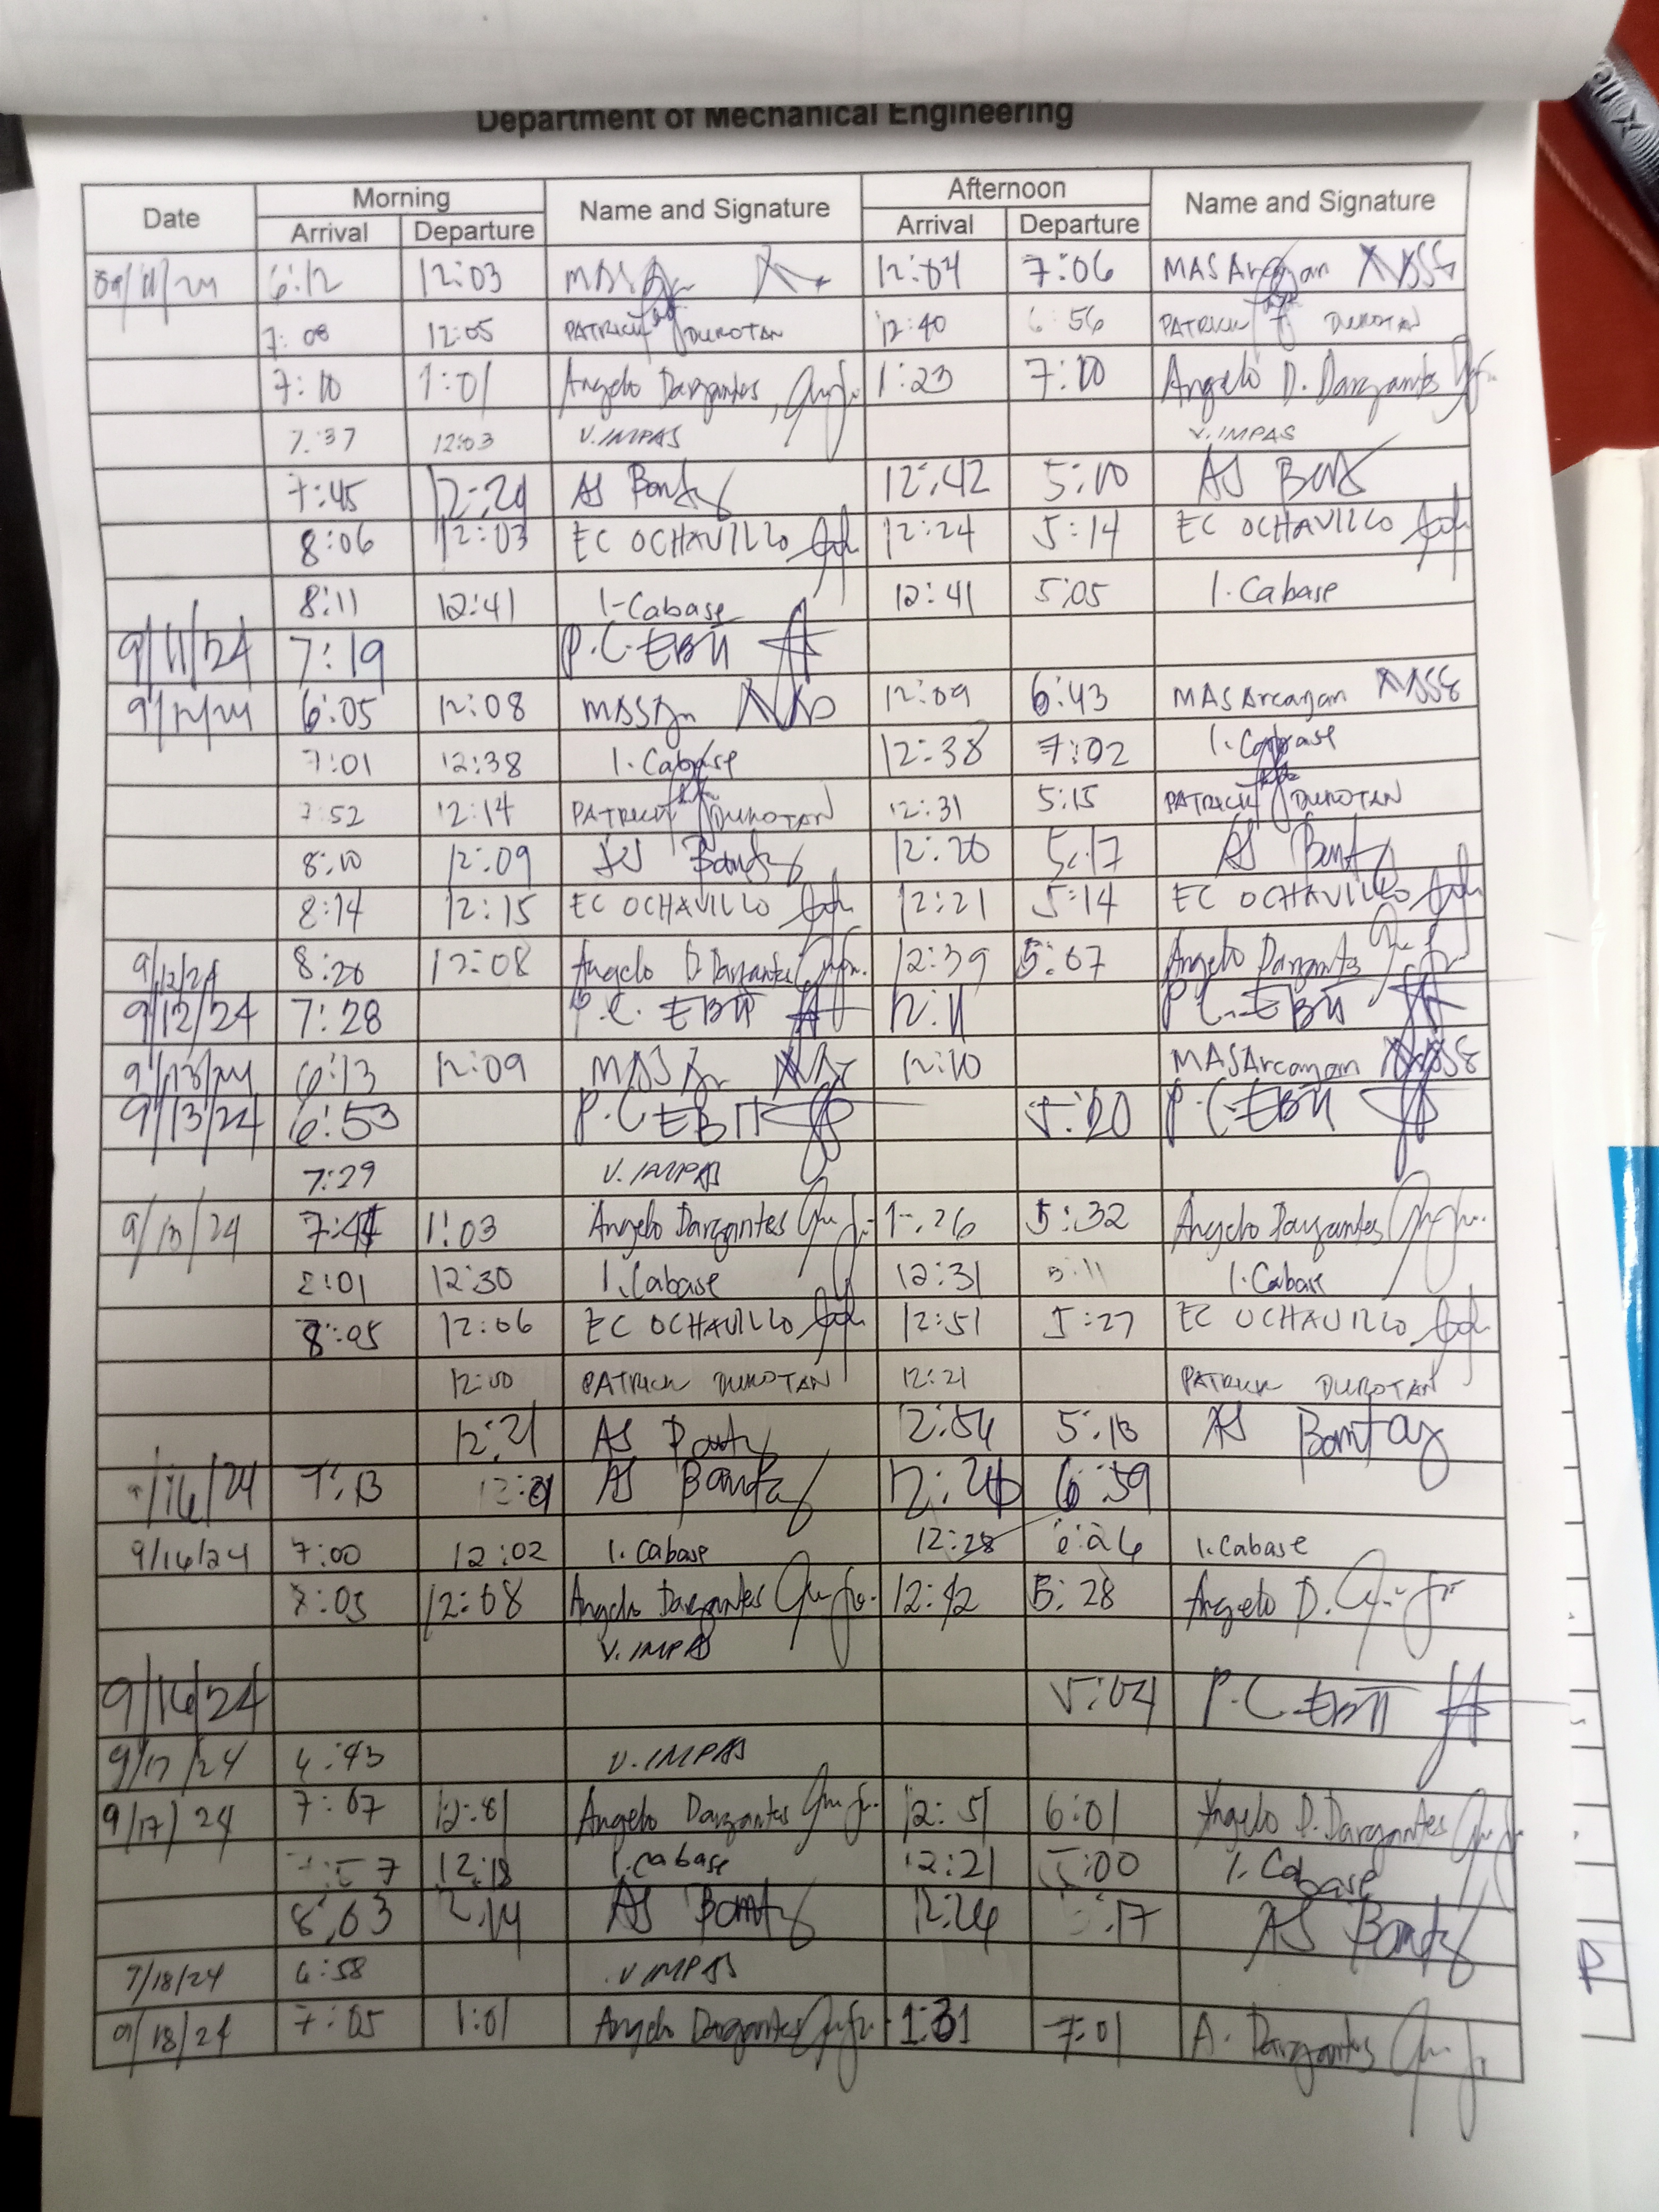 Department of Mechanical Engineering
Date Morning Name and Signature Afternoon Name and Signature
Arrival Departure Arrival Departure
09/11/24 6:12 12:03 12:04 7:06 MASArcayan
7:08 12:05 PATRICK DUROTAN 12:40 6:56 PATRICK DUROTAN
7:10 1:01 Angelo Dargantes 1:23 7:10 Angelo D. Dargantes
7:37 12:03 V. IMPAS V. IMPAS
7:45 AS 12:42 5:10 AS
8:06 12:03 EC OCHAVILLO 12:24 5:14 EC OCHAVILLO
8:11 12:41 I. Cabase 12:41 5:05 I. Cabase
9/11/24 7:19 P.C. EBII
9/12/24 6:05 12:08 12:09 6:43 MASArcayan
7:01 12:38 I. Cabase 12:38 7:02 I. Cabase
7:52 12:14 PATRICK DUROTAN 12:31 5:15 PATRICK DUROTAN
8:10 12:09 12:20 5:17 AS
8:14 12:15 EC OCHAVILLO 12:21 5:14 EC OCHAVILLO
9/12/24 8:20 12:08 Angelo D. Dargantes 12:39 5:07 Angelo Dargantes
9/12/24 7:28 P.C. EBII 12:11 P.C. EBII
9/13/24 6:13 12:09 12:10 MASArcayan
9/13/24 6:53 P.C. EBII 5:20 P.C. EBII
7:29 V. IMPAS
9/13/24 1:03 Angelo Dargantes 1:26 5:32 Angelo Dargantes
8:01 12:30 I. Cabase 12:31 5:11 I. Cabase
8:05 12:06 EC OCHAVILLO 12:51 5:27 EC OCHAVILLO
12:00 PATRICK DUROTAN 12:21 PATRICK DUROTAN
12:21 AS 5:13 AS Bontay
9/16/24 7:13 AS 6:59
9/16/24 7:00 12:02 I. Cabase 12:28 I. Cabase
7:05 12:08 Angelo Dargantes 12:42 5:28 Angelo D.
V. IMPAS
9/16/24 5:04 P.C. EBII
9/17/24 6:43 V. IMPAS
9/17/24 7:07 Angelo Dargantes 12:51 6:01 Angelo D. Dargantes
12:18 I. Cabase 12:21 5:00 I. Cabase
8:03 AS AS
9/18/24 6:58 V IMPAS
9/18/24 7:05 1:01 Angelo Dargantes 1:31 7:01 A. Dargantes